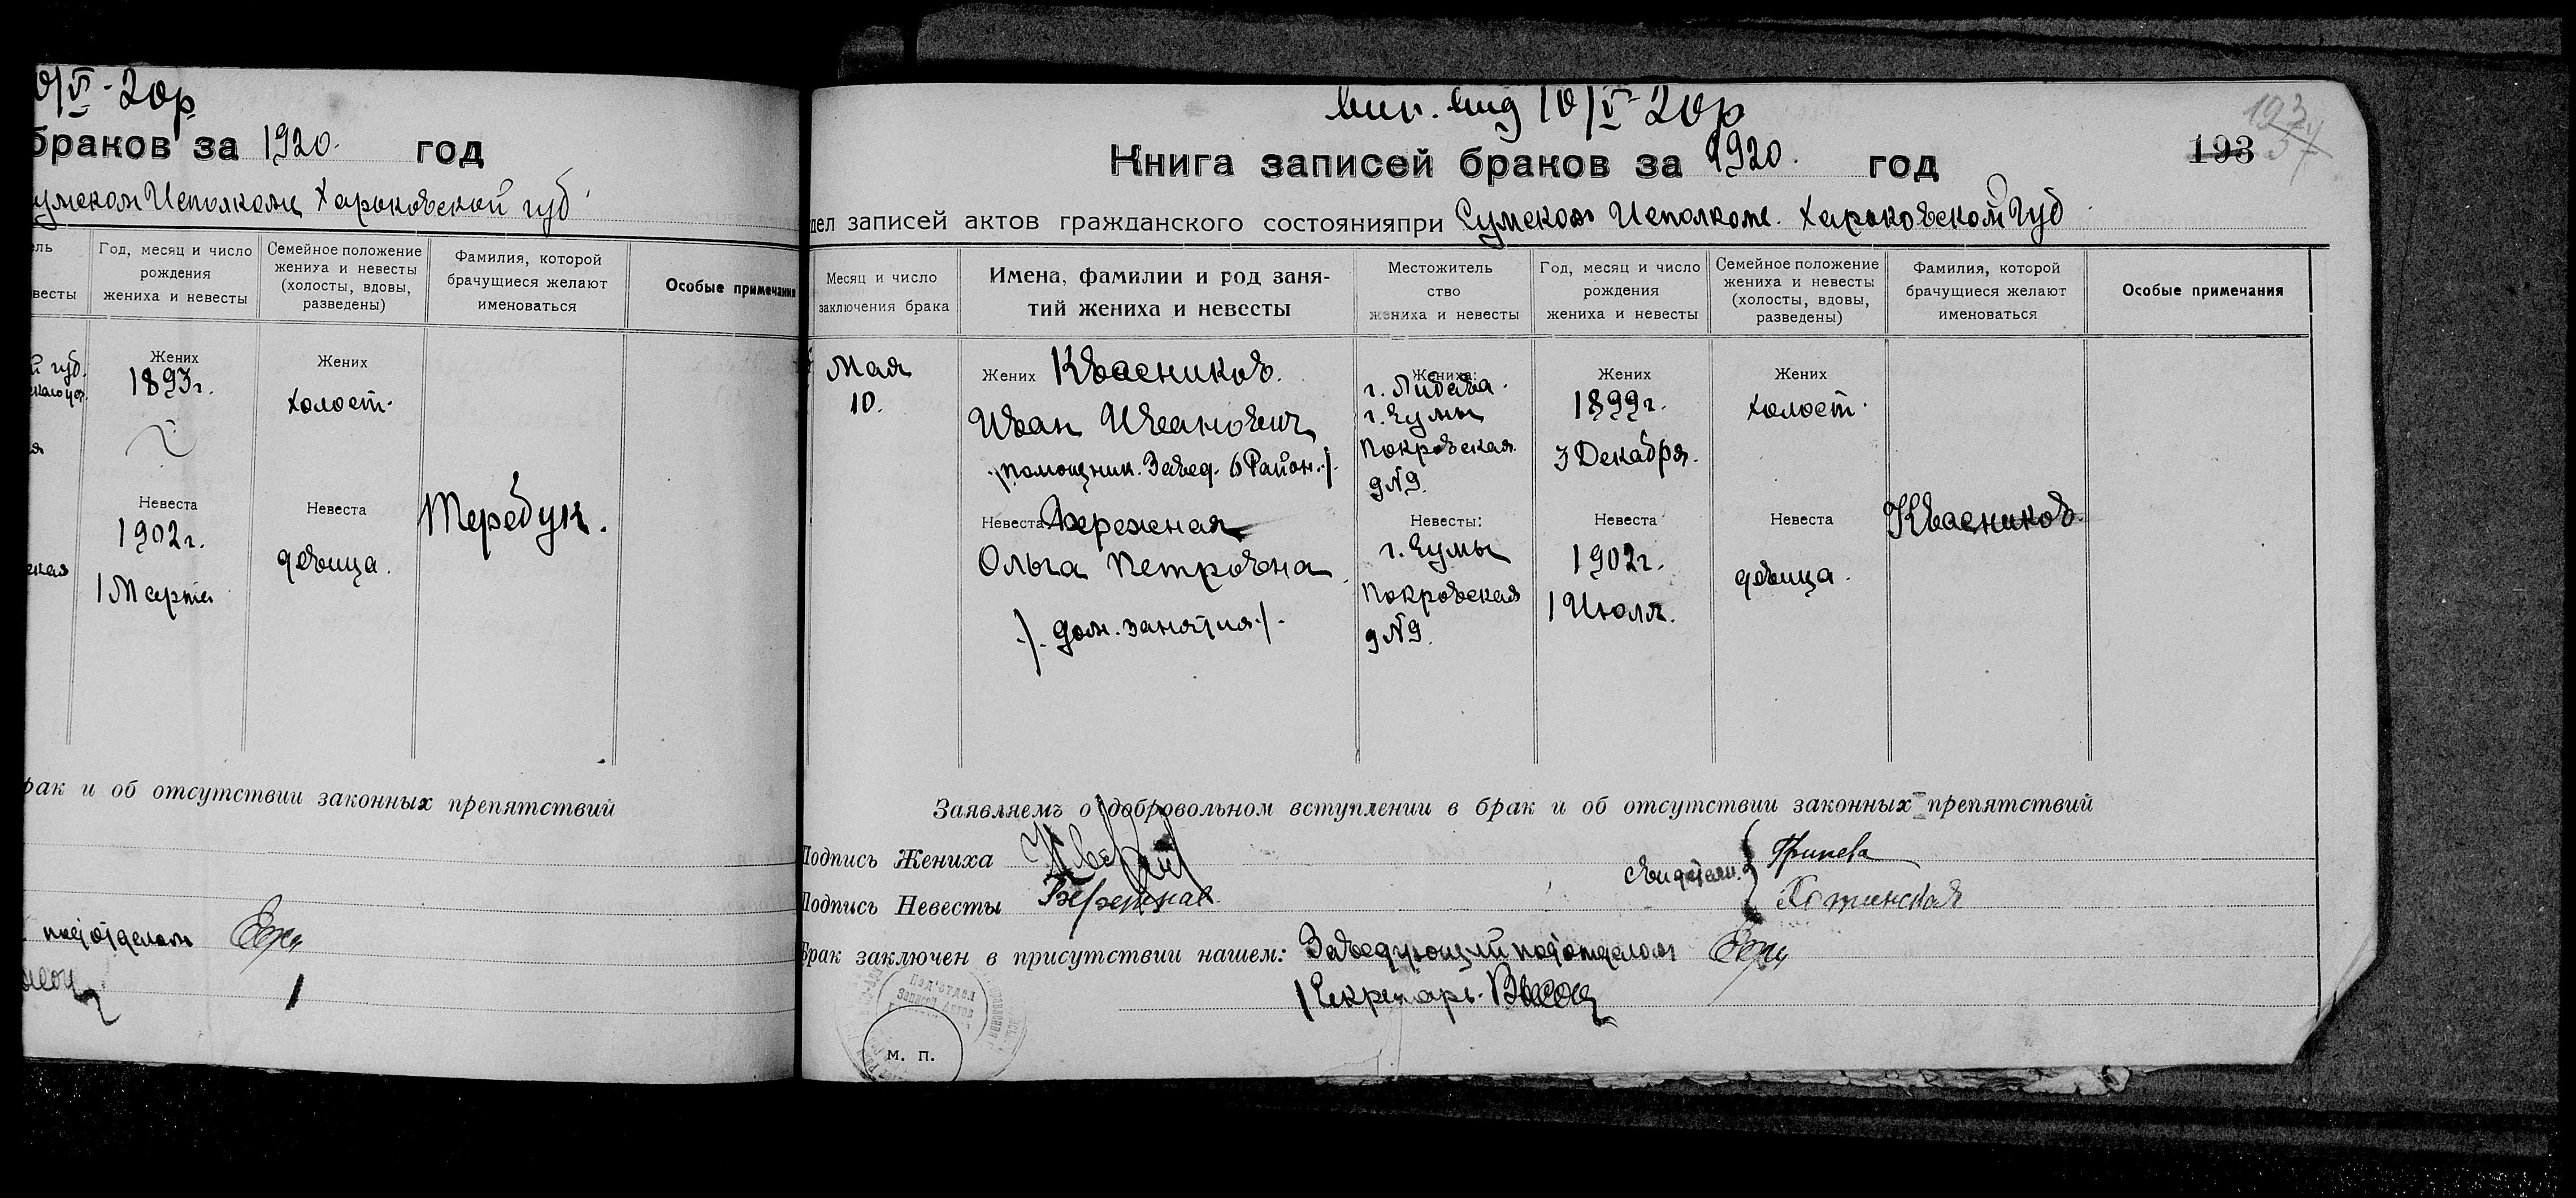 0/V-20р
браков за 1920. год
умском Исполкоми Харьковской губ
Год, месяц и число рождения жениха и невесты
Семейное положение жениха и невесты (холосты, вдовы, разведены)
Фамилия, которой брачущиеся желают именоваться
Особые примечания
Жених
1893г.
Жених
холост.
Невеста
1902г.
1 Марта
Невеста
девица.
Теребун.
рак и об отсутствии законных препятствий
подотделом
вып. вид 10/V-20р
193
Книга записей браков за 1920. год
дел записей актов гражданского состоянияпри Сумском Исполкоме. Харьковской Губ
Месяц и число заключения брака
Имена, фамилии и род занятий жениха и невесты
Местожительство жениха и невесты
Год, месяц и число рождения жениха и невесты
Семейное положение жениха и невесты (холосты, вдовы, разведены)
Фамилия, которой брачущиеся желают именоваться
Особые примечания
Мая
10.
Жених Квасников.
Иван Иванович
/помощник. Завед. 6 Район./.
Жениха:
г. Либава.
г. Сумы
Покровская
д№9.
Жених
1899г.
3 Декабря.
Жених
холост.
Невеста Бережная
Ольга Петровна
/. дом. занятия./.
Невесты:
г. Сумы
Покровская
д№9.
Невеста
1902г.
1 Июля.
Невеста
девица.
Квасников.
Заявляемъ о добровольном вступлении в брак и об отсутствии законных препятствий
Подпись Жениха
Подпись Невесты Бережная
свидетели.
Хотинская
Брак заключен в присутствии нашем: Заведующий подотделом
Секретарь.
Под'отдел
Записей Актов
м. п.